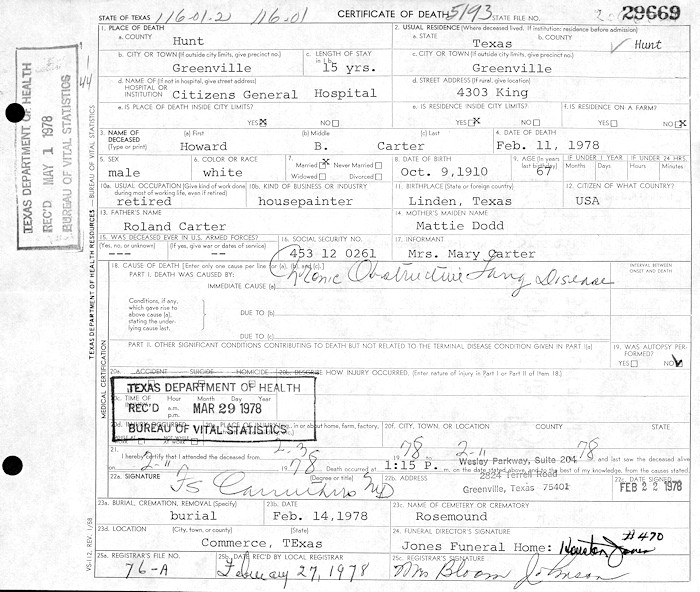 STATE OF TEXAS 116-01-2 116-01 CERTIFICATE OF DEATH 5193 STATE FILE NO. 29669
1. PLACE OF DEATH
a. COUNTY
Hunt
2. USUAL RESIDENCE (Where deceased lived. If institution: residence before admission)
a. STATE
Texas
b. COUNTY
Hunt
b. CITY OR TOWN (If outside city limits, give precinct no.)
Greenville
c. LENGTH OF STAY in 1b
15 yrs.
c. CITY OR TOWN (If outside city limits, give precinct no.)
Greenville
d. NAME OF (If not in hospital, give street address)
HOSPITAL OR
INSTITUTION
Citizens General Hospital
d. STREET ADDRESS (If rural, give location)
4303 King
e. IS PLACE OF DEATH INSIDE CITY LIMITS?
YES X NO
e. IS RESIDENCE INSIDE CITY LIMITS?
YES X NO
f. IS RESIDENCE ON A FARM?
YES NO X
3. NAME OF
DECEASED
(Type or print)
(a) First
Howard
(b) Middle
B.
(c) Last
Carter
4. DATE OF DEATH
Feb. 11, 1978
5. SEX
male
6. COLOR OR RACE
white
7.
Married X Never Married
Widowed Divorced
8. DATE OF BIRTH
Oct. 9,1910
9. AGE (In years last birthday)
67
IF UNDER 1 YEAR
Months Days
IF UNDER 24 HRS.
Hours Minutes
10a. USUAL OCCUPATION (Give kind of work done during most of working life, even if retired)
retired
10b. KIND OF BUSINESS OR INDUSTRY
housepainter
11. BIRTHPLACE (State or foreign country)
Linden, Texas
12. CITIZEN OF WHAT COUNTRY?
USA
13. FATHER'S NAME
Roland Carter
14. MOTHER'S MAIDEN NAME
Mattie Dodd
15. WAS DECEASED EVER IN U.S. ARMED FORCES?
(Yes, no, or unknown) (If yes, give war or dates of service)
16. SOCIAL SECURITY NO.
453 12 0261
17. INFORMANT
Mrs. Mary Carter
18. CAUSE OF DEATH [Enter only one cause per line for (a), (b), and (c).]
INTERVAL BETWEEN
ONSET AND DEATH
PART I. DEATH WAS CAUSED BY:
IMMEDIATE CAUSE (a) Chronic Obstructive Lung Disease
Conditions, if any,
which gave rise to
above cause (a),
stating the under-
lying cause last.
DUE TO (b)
DUE TO (c)
PART II. OTHER SIGNIFICANT CONDITIONS CONTRIBUTING TO DEATH BUT NOT RELATED TO THE TERMINAL DISEASE CONDITION GIVEN IN PART I(a)
19. WAS AUTOPSY PER-
FORMED?
YES NO
20a. ACCIDENT SUICIDE HOMICIDE
20b. DESCRIBE HOW INJURY OCCURRED. (Enter nature of injury in Part I or Part II of Item 18.)
20c. TIME OF
Hour Month Day Year
a.m.
p.m.
TEXAS DEPARTMENT OF HEALTH
REC'D MAR 29 1978
BUREAU OF VITAL STATISTICS
20f. CITY, TOWN, OR LOCATION COUNTY STATE
21.
I hereby certify that I attended the deceased from 2-3 1978 2-11 78 and last saw the deceased alive
on 2-11 1978 Death occurred at 1:15 P. m. on the date stated above, and to the best of my knowledge, from the causes stated.
22a. SIGNATURE
(Degree or title)
22b. ADDRESS
Wesley Parkway, Suite 204
2824 Terrell Road
Greenville, Texas 75401
22c. DATE SIGNED
FEB 22 1978
23a. BURIAL, CREMATION, REMOVAL (Specify)
burial
23b. DATE
Feb. 14,1978
23c. NAME OF CEMETERY OR CREMATORY
Rosemound
23d. LOCATION (City, town, or county) (State)
Commerce, TExas
24. FUNERAL DIRECTOR'S SIGNATURE
Jones Funeral Home: Houston Jones #470
25a. REGISTRAR'S FILE NO.
76-A
25b. DATE REC'D BY LOCAL REGISTRAR
February 27, 1978
25c. REGISTRAR'S SIGNATURE
Mrs Bloom Johnson
TEXAS DEPARTMENT OF HEALTH
REC'D MAY 1 1978
BUREAU OF VITAL STATISTICS
TEXAS DEPARTMENT OF HEALTH RESOURCES — BUREAU OF VITAL STATISTICS
MEDICAL CERTIFICATION
VS-112, REV. 1/58